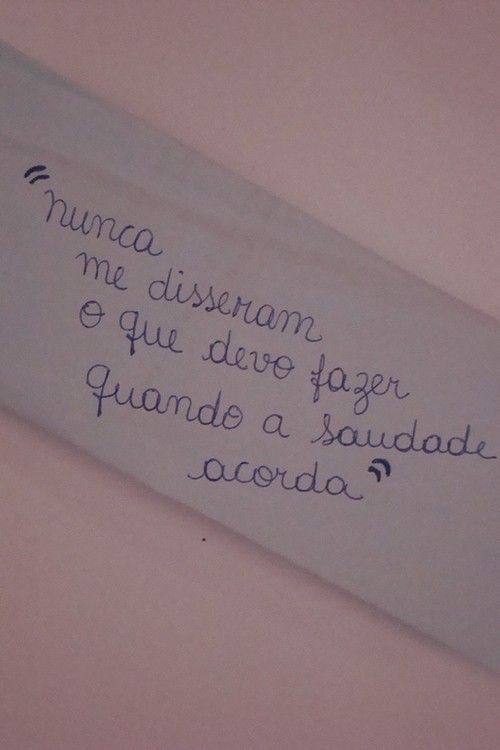 "nunca
me disseram
o que devo fazer
quando a saudade
acorda"